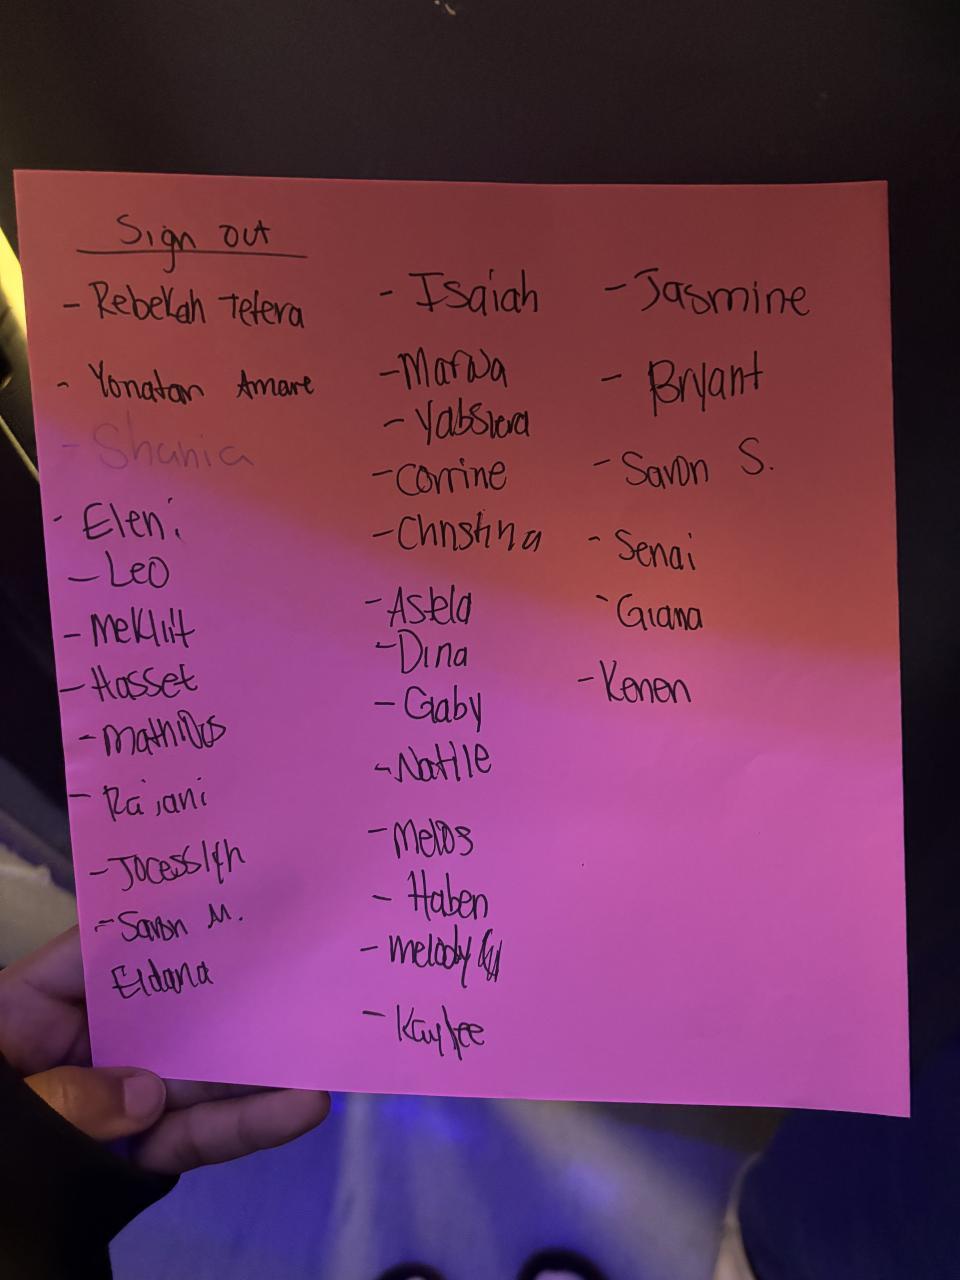 Sign out
- Rebekah Tefera
- Yonatan Amare
- Shania
- Eleni
- Leo
- Meklit
- Hasset
- Mathios
- Rajani
- Jocesslyn
- Savon M.
Eldana
- Isaiah
- Marwa
- Yabsera
- Corrine
- Christina
- Astela
- Dina
- Gaby
- Natlie
- Melos
- Haben
- Melody
- Kaylee
- Jasmine
- Bryant
- Savon S.
- Senai
- Giana
- Kenen